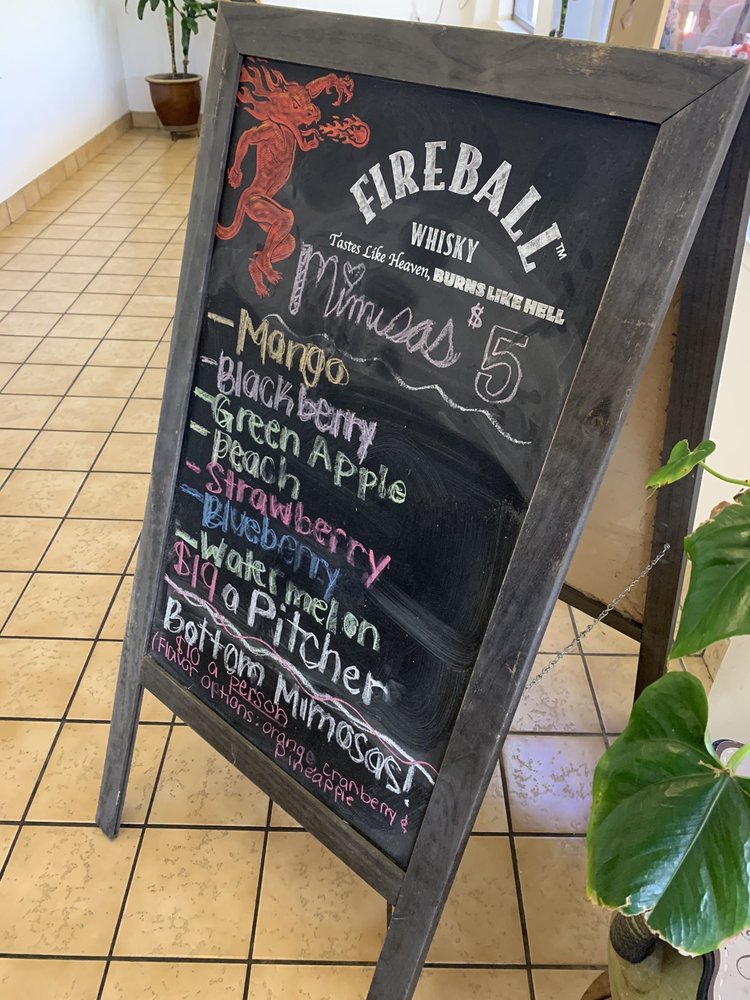 FIREBALL™
WHISKY
Tastes Like Heaven, BURNS LIKE HELL
Mimosas $5
- Mango
- Blackberry
- Green Apple
- Peach
- Strawberry
- Blueberry
- Watermelon
$19 a Pitcher
Bottom Mimosas!
$10 a Person
(Flavor options: orange, cranberry &
pineapple